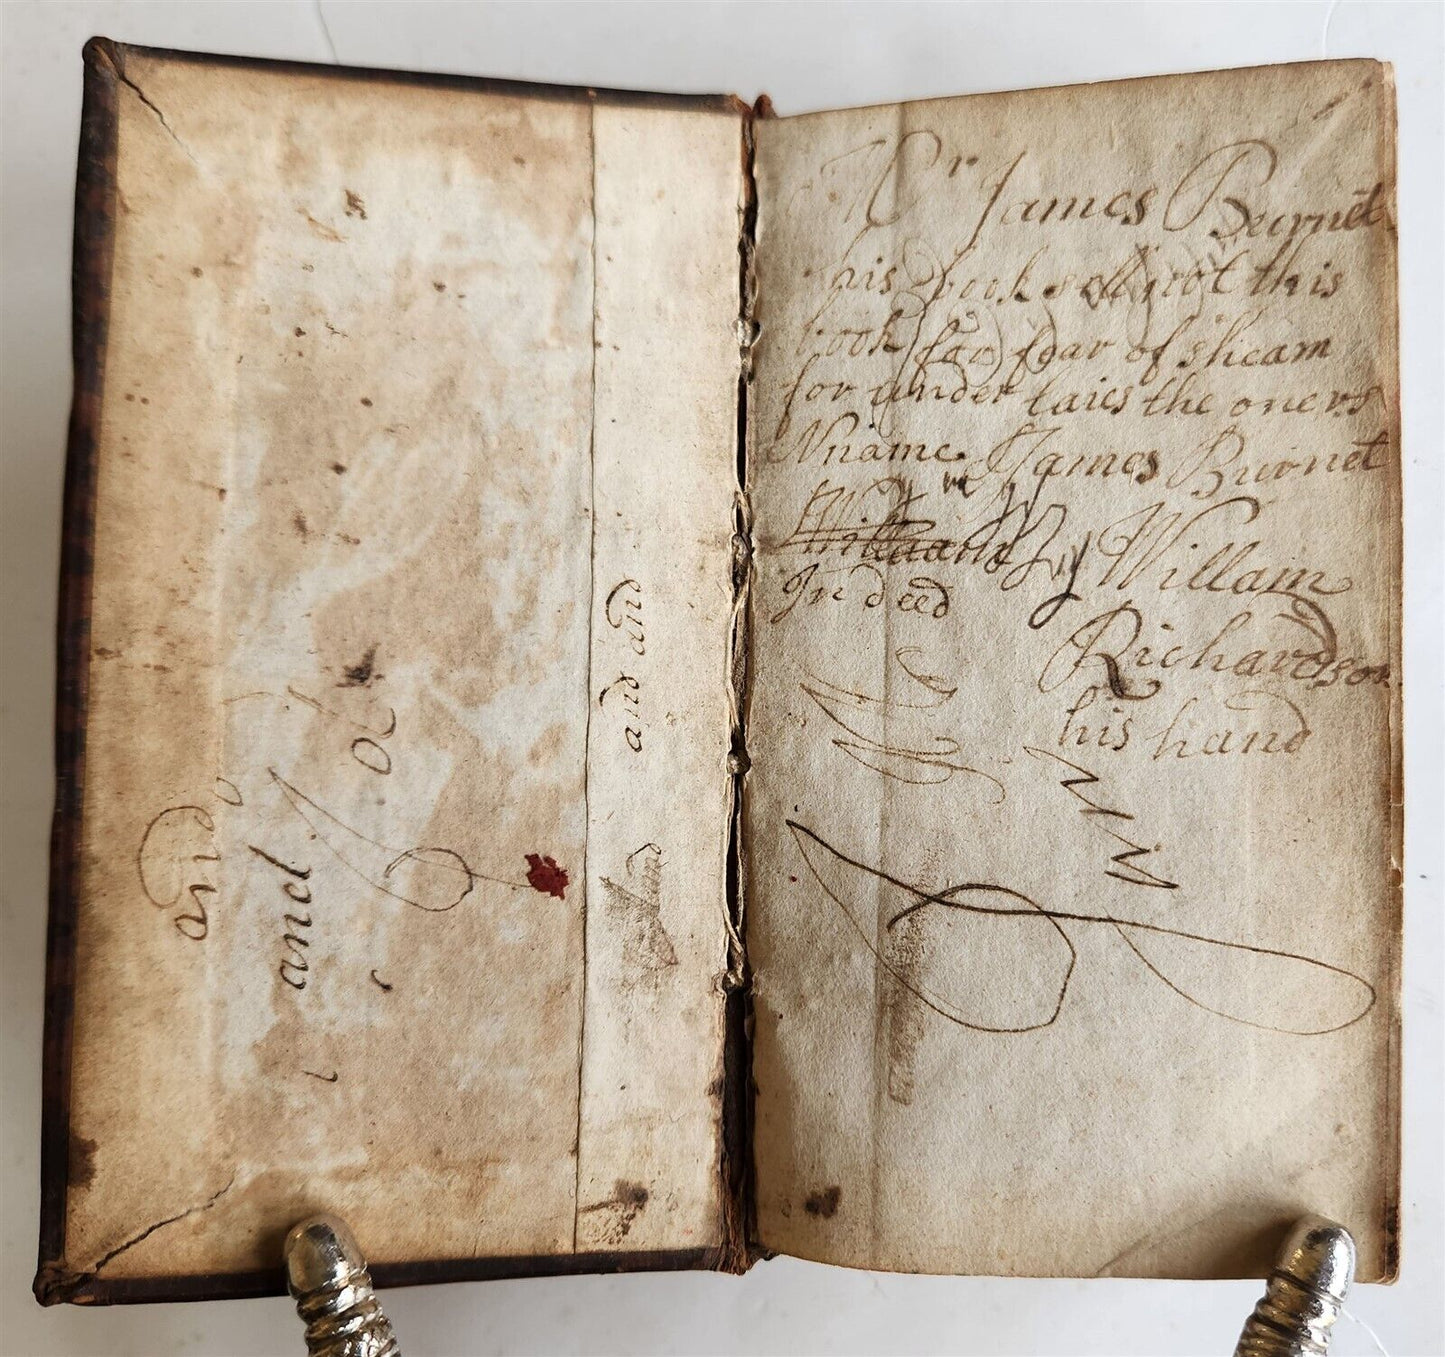 and
and
or
and and
and
Mr James Burnet
his book sell not this
book for fear of sheam
for under laies the oners
Nname James Burnet
William
Indeed
Willam
Richardson
his hand